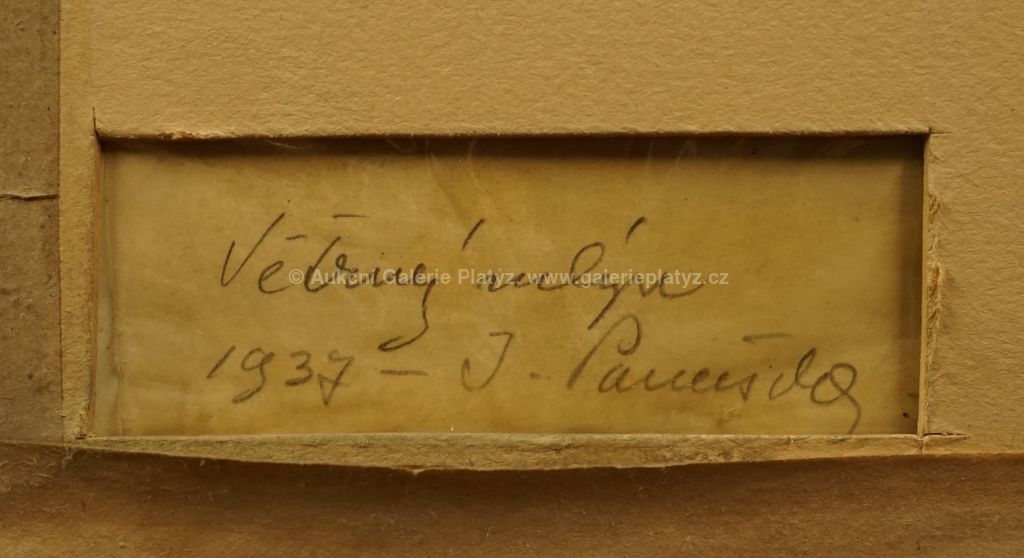 Větrný mlýn
© Aukční Galerie Platýz, www.galerieplatyz.cz
1937 – J. Panuška